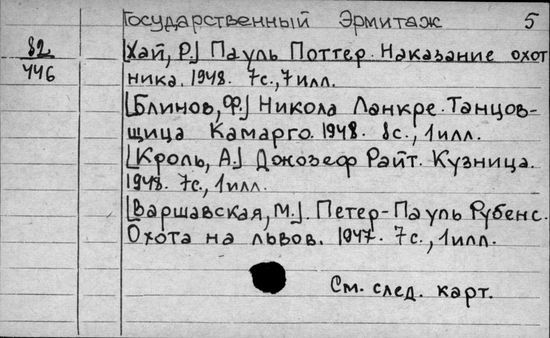 Государственный Эрмитаж 5
82
446
[Хай, Р.] Пауль Поттер. Наказание охот
ника. 1948. 7с., 7 илл.
[Блинов, Ф.] Никола Ланкре. Танцов-
щица Камарго. 1948. 8с., 1 илл.
[Кроль, А.] Джозеф Райт. Кузница.
1948. 7с., 1 илл.
[Варшавская, М.]. Петер-Пауль Рубенс.
Охота на львов. 1947. 7с., 1 илл.
См. след. карт.